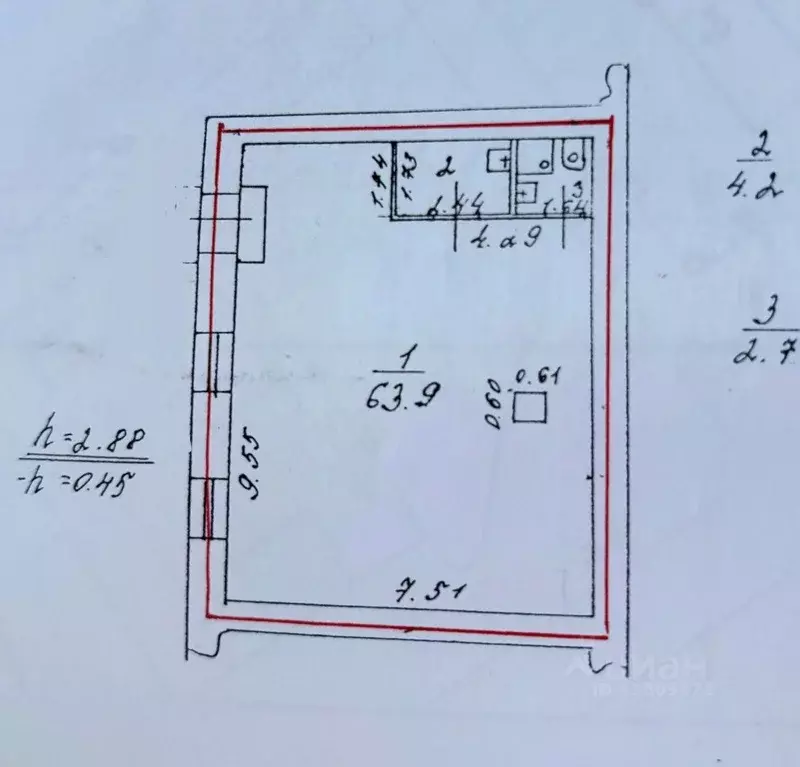 2
4.2
1.44
1.73
2
3
2.44
1.54
4.09
3
2.7
1
63.9
0.61
0.60
h=2.88
-h=0.45
9.55
7.51